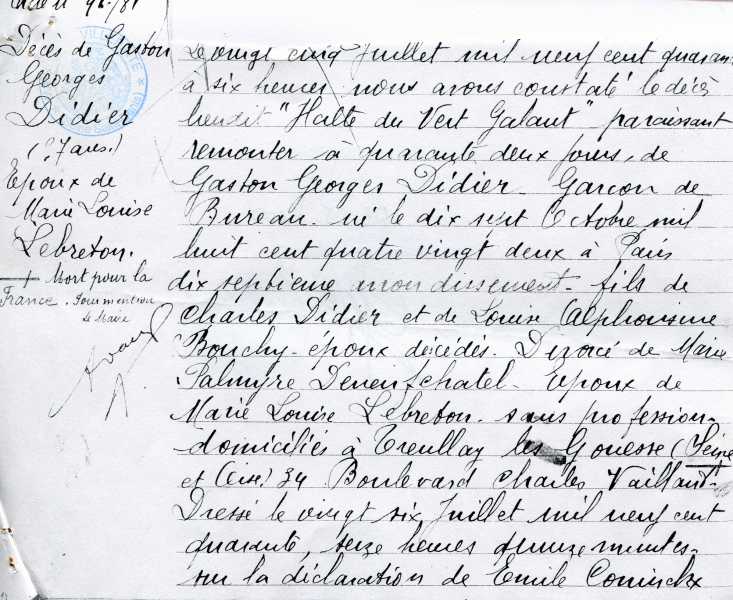 Décès de Gaston
Georges
Didier
Epoux de
Marie Louise
Lebreton.
Mort pour la
France. Pour mention
le Maire
Le vingt cinq Juillet mil neuf cent quaran
à six heures nous avons constaté le décès
lieudit "Halte du Vert Galant" paraissant
remonter à quarante deux jours, de
Gaston Georges Didier. Garçon de
Bureau. né le dix sept Octobre mil
huit cent quatre vingt deux à Paris
dix septieme arrondissement. fils de
Charles Didier et de Louise Alphonsine
Bouchy. époux décédés. Divorcé de Marie
Palmyre Deneufchatel. Epoux de
Marie Louise Lebreton. sans profession.
domiciliés à les Gonesse (Seine
et Oise) 34 Boulevard Charles Vaillant.
Dressé le vingt six Juillet mil neuf cent
quarante, seize heures quinze minutes.
sur la déclaration de Emile Cominckx